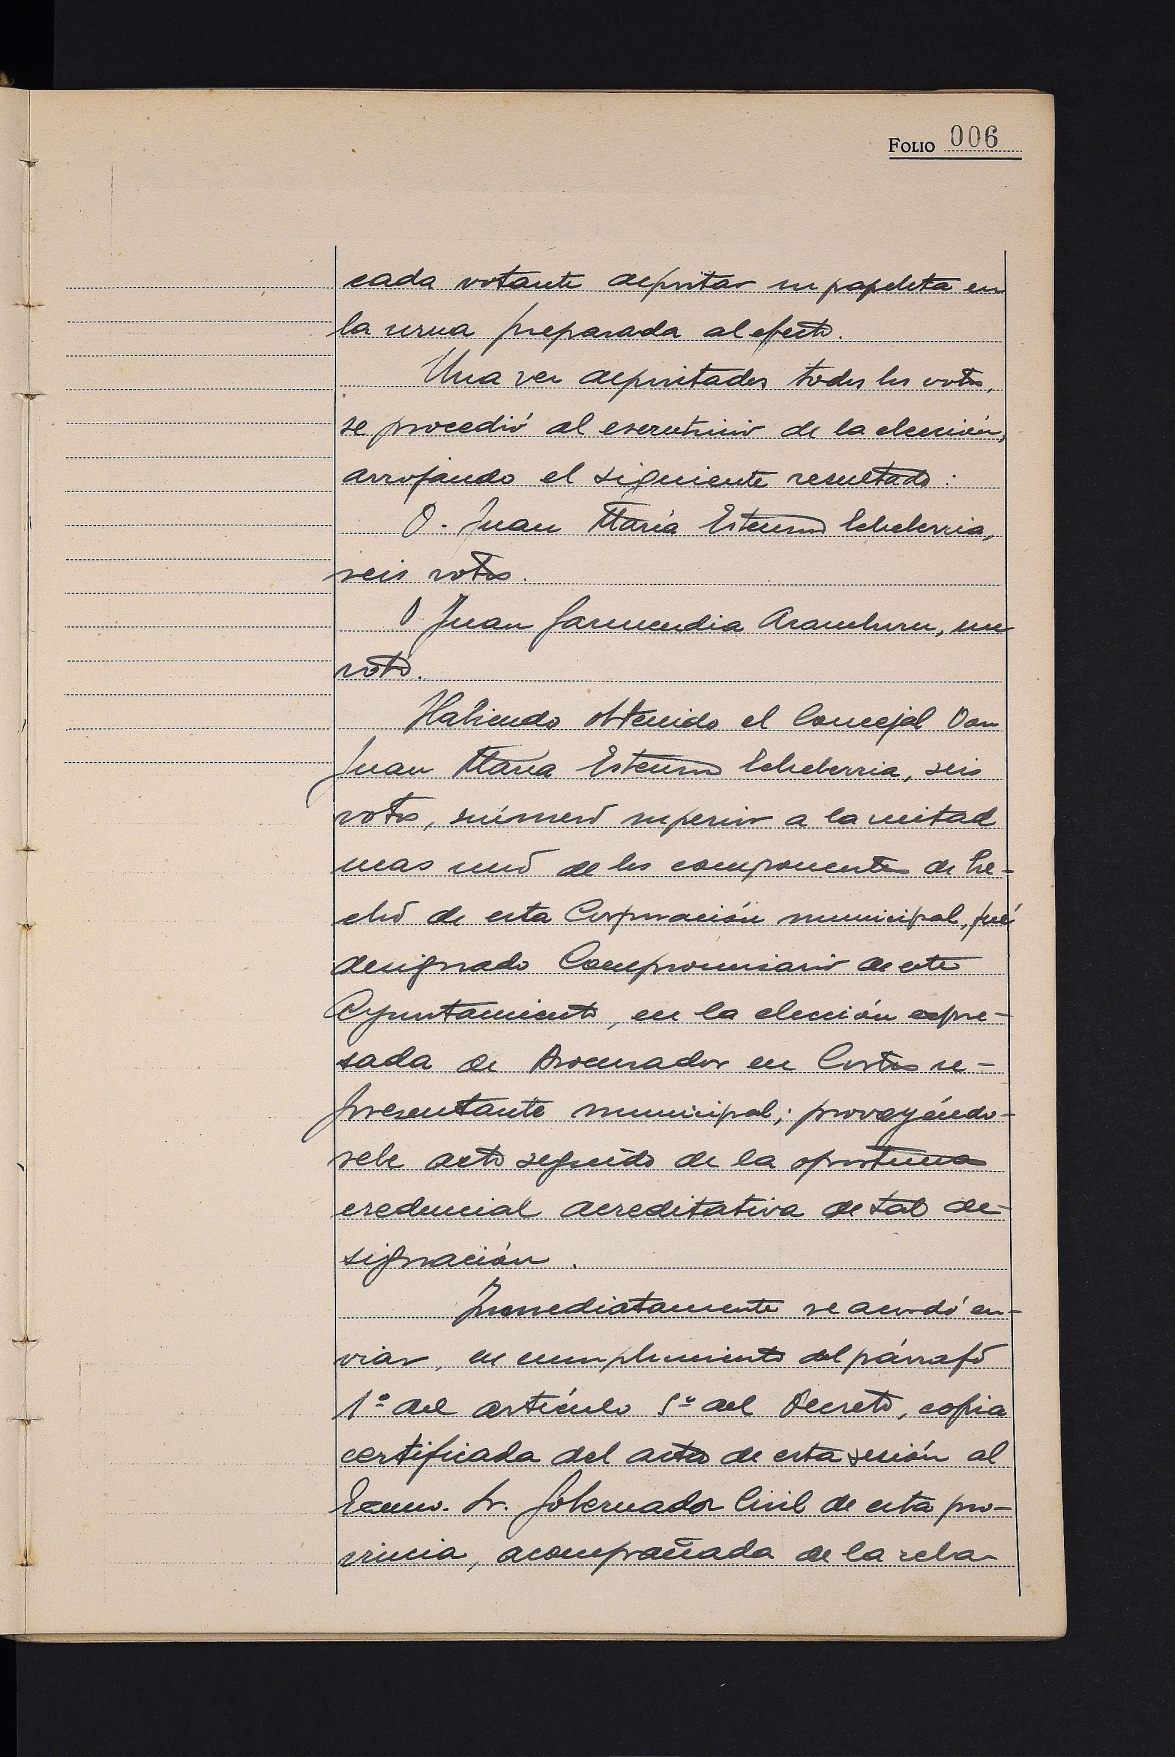 FOLIO 006
cada votante depositar su papeleta en
la urna preparada al efecto.
Una vez depositados todos los votos,
se procedió al escrutinio de la elección,
arrojando el siguiente resultado:
D. Juan María Estensoro Echeberria,
seis votos.
D Juan Garmendia Aramburu, un
voto.
Habiendo obtenido el Concejal Don
Juan María Estensoro Echeberria, seis
votos, número superior a la mitad
mas uno de los componentes de he-
cho de esta Corporación municipal, fué
designado Compromisario de este
Ayuntamiento, en la elección expre-
sada de Procurador en Cortes re-
presentante municipal; proveyéndo-
sele acto seguido de la oportuna
credencial acreditativa de tal de-
signación.
Inmediatamente se acordó en-
viar, en cumplimiento del párrafo
1º del artículo 5º del Decreto, copia
certificada del acta de esta sesión al
Excmo. Sr. Gobernador Civil de esta pro-
vincia, acompañada de la rela-